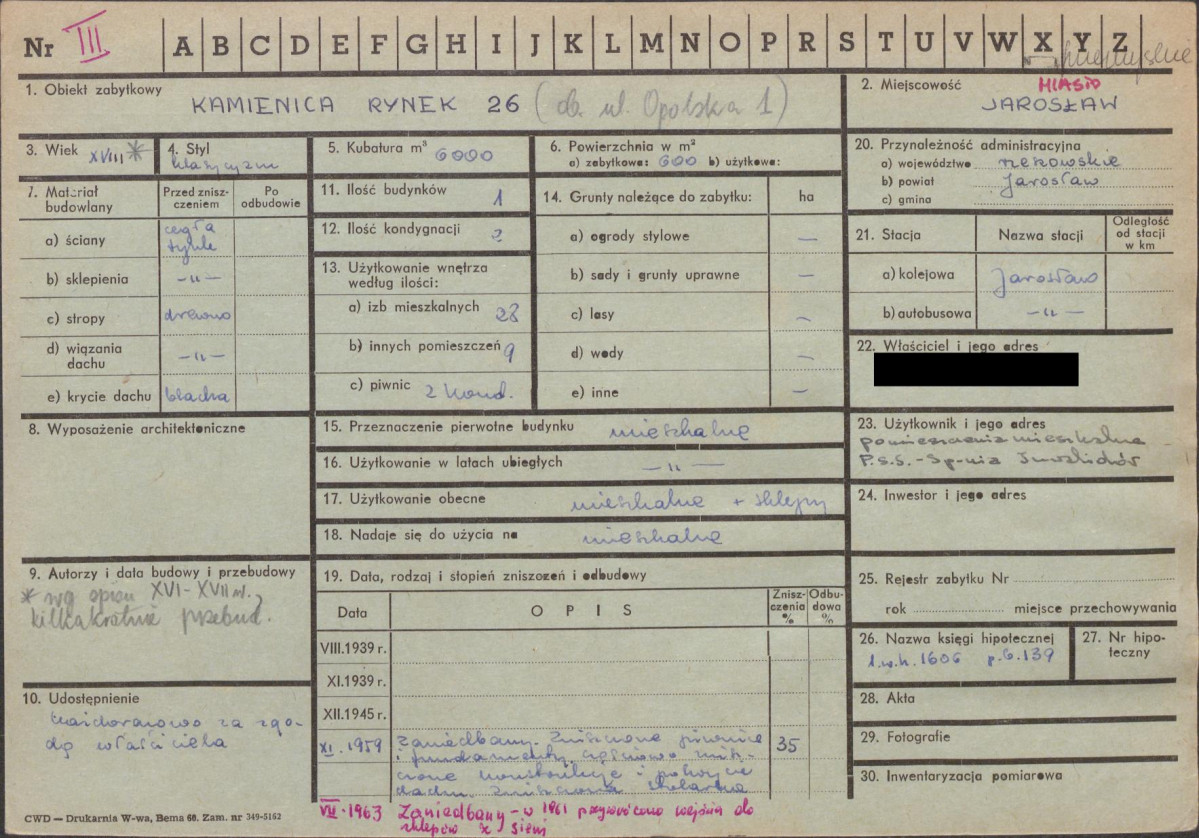 Nr III A B C D E F G H I J K L M N O P R S T U V W X Y Z
przemyskie
1. Obiekt zabytkowy
KAMIENICA RYNEK 26 (ob. ul. Opolska 1)
2. Miejscowość MIASTO
JAROSŁAW
3. Wiek XVIII *
4. Styl
klasycyzm
5. Kubatura m³ 6000
6. Powierzchnia w m²
a) zabytkowa: 600 b) użytkowa:
7. Materiał budowlany
Przed zniszczeniem
Po odbudowie
a) ściany cegła
tynk
b) sklepienia —〃—
c) stropy drewno
d) wiązania dachu —〃—
e) krycie dachu blacha
8. Wyposażenie architektoniczne
9. Autorzy i data budowy i przebudowy
* wg opisu XVI-XVII w.,
kilkakrotnie przebud.
10. Udostępnienie
za zgo-
dą właściciela
11. Ilość budynków 1
12. Ilość kondygnacji 2
13. Użytkowanie wnętrza
według ilości:
a) izb mieszkalnych 28
b) innych pomieszczeń 9
c) piwnic 2 kond.
14. Grunty należące do zabytku: ha
a) ogrody stylowe —
b) sady i grunty uprawne —
c) lasy —
d) wody —
e) inne —
15. Przeznaczenie pierwotne budynku mieszkalne
16. Użytkowanie w latach ubiegłych —〃—
17. Użytkowanie obecne mieszkalne + sklepy
18. Nadaje się do użycia na mieszkalne
19. Data, rodzaj i stopień zniszczeń i odbudowy
Data
O P I S
Zniszczenia %
Odbudowa %
VIII.1939 r.
XI.1939 r.
XII.1945 r.
XI.1959 Zaniedbany. Zniszczone piwnice 35
i fundamenty, częściowo znisz-
czone konstrukcje i pokrycie
dachu. Zniszczona stolarka
VII.1963 Zaniedbany - w 1961 przywrócono wejścia do
sklepów z sieni
20. Przynależność administracyjna
a) województwo rzeszowskie
b) powiat Jarosław
c) gmina
21. Stacja
Nazwa stacji
Odległość od stacji w km
a) kolejowa Jarosław
b) autobusowa —〃—
22. Właściciel i jego adres
23. Użytkownik i jego adres
pomieszczenia mieszkalne
P.S.S. - Sp-nia Inwalidów
24. Inwestor i jego adres
25. Rejestr zabytku Nr
rok miejsce przechowywania
26. Nazwa księgi hipotecznej
l.w.h. 1606 p.b. 139
27. Nr hipoteczny
28. Akta
29. Fotografie
30. Inwentaryzacja pomiarowa
CWD — Drukarnia W-wa, Bema 60. Zam. nr 349-5162